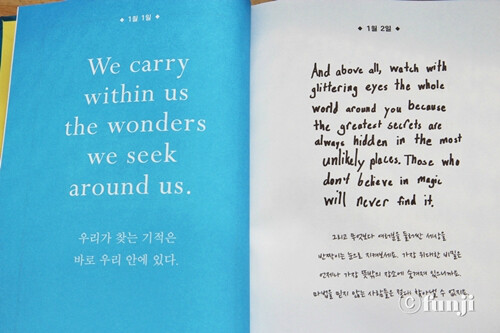 ◆ 1월 1일 ◆
We carry
within us
the wonders
we seek
around us.
우리가 찾는 기적은
바로 우리 안에 있다.
◆ 1월 2일 ◆
And above all, watch with
glittering eyes the whole
world around you because
the greatest secrets are
always hidden in the most
unlikely places. Those who
don't believe in magic
will never find it.
그리고 무엇보다 여러분을 둘러싼 세상을
반짝이는 눈으로 지켜보세요. 가장 위대한 비밀은
언제나 가장 뜻밖의 장소에 숨겨져 있으니까요.
마법을 믿지 않는 사람들은 절대 찾아낼 수 없지요.
©funji